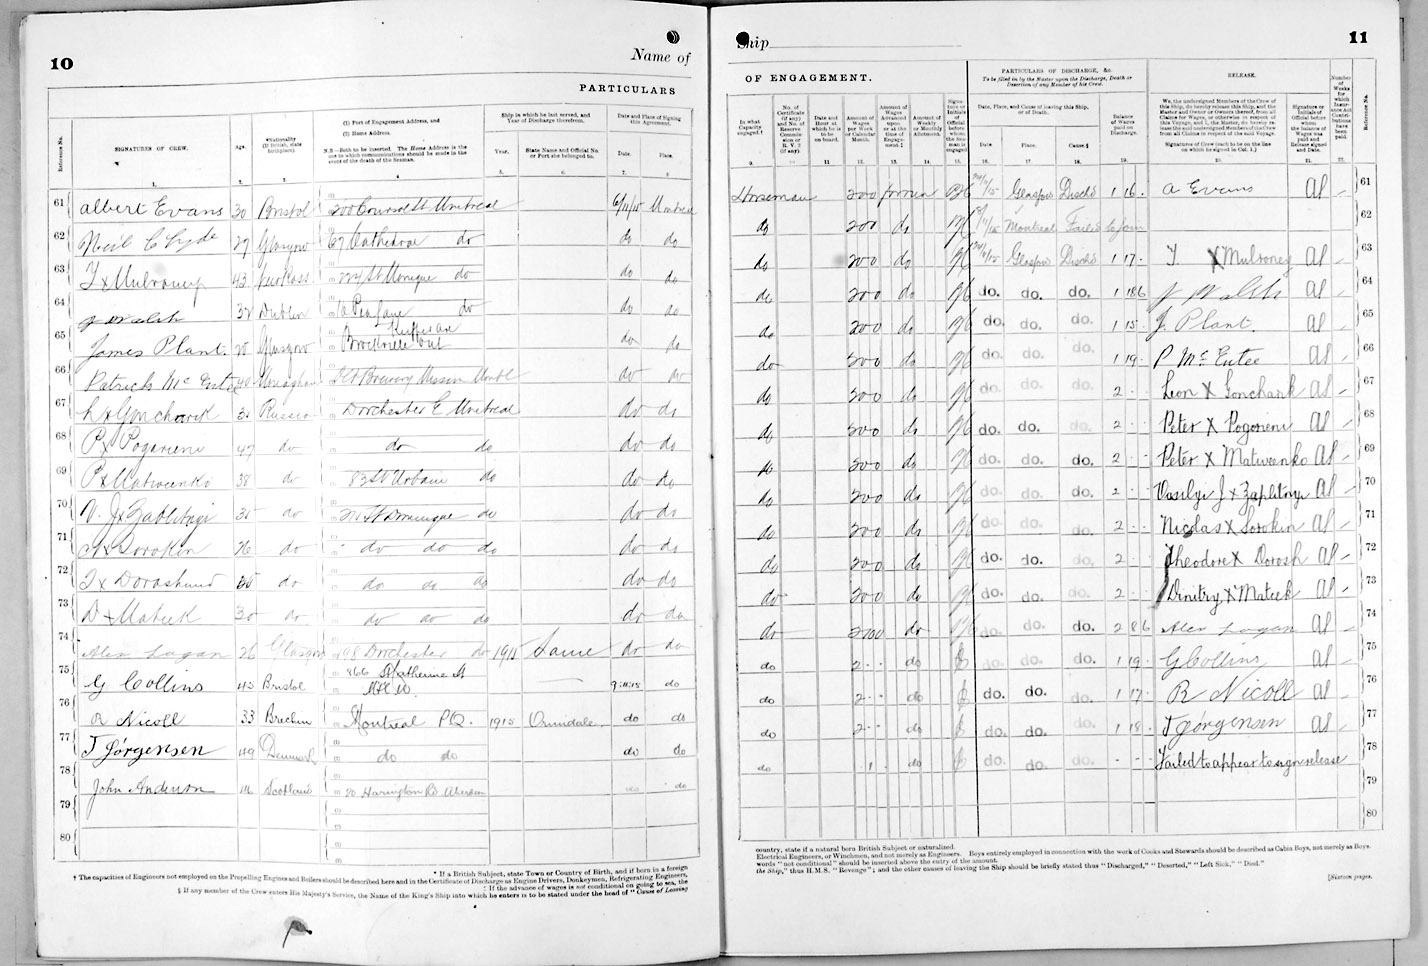 10
Name of
PARTICULARS
Reference No.
SIGNATURES OF CREW.
Age.
*Nationality (If British, state birthplace).
(1) Port of Engagement Address, and
(2) Home Address.
N.B.—Both to be inserted. The Home Address is the one in which communications should be made in the event of the death of the Seaman.
Ship in which he last served, and Year of Discharge therefrom.
Year.
State Name and Official No. or Port she belonged to.
Date and Place of Signing this Agreement.
Date.
Place.
1. 2. 3. 4 5. 6. 7. 8
61 Albert Evans 30 Bristol Montreal 6/11/15 Montreal
62 Neil Clyde 27 Glasgow 67 Cathedral do do do
63 T x Mulroney 43 do do do
64 J Walsh 32 Dublin do do do
65 James Plant. Glasgow Brockville Ont do do
66 Patrick McEntee 40 Monaghan do do
67 L x Goncharik Russia Dorchester E Montreal do do
68 P x Pogorieni 47 do do do do do
69 P x Matweenko 38 do 83 St Urbain do do do
70 V. J x Zaplitnyi 35 do St Dominique do do do
71 N x Sorokin 26 do do do do do do
72 T x Dorosh do do do do do do
73 D x Mateek 30 do do do do do do
74 Alex Logan 26 Glasgow 98 Dorchester do 1915 Same do do
75 G Collins 45 Bristol 866 St Catherine St 9.11.15 do
76 R Nicoll 33 Brechin Montreal P.Q. 1915 Orundale do do
77 J Jørgensen 49 Denmark do do do do
78 John Anderson Scotland 20 Harington Rd Aberdeen do
79
80
* If a British Subject, state Town or Country of Birth, and if born in a foreign
† The capacities of Engineers not employed on the Propelling Engines and Boilers should be described here and in the Certificate of Discharge as Engine Drivers, Donkeymen, Refrigerating Engineers,
‡ If the advance of wages is not conditional on going to sea, the
§ If any member of the Crew enters His Majesty's Service, the Name of the King's Ship into which he enters is to be stated under the head of "Cause of Leaving
Ship
11
OF ENGAGEMENT.
PARTICULARS OF DISCHARGE, &c.
To be filled in by the Master upon the Discharge, Death or Desertion of any Member of his Crew.
RELEASE.
In what Capacity engaged.†
No. of Certificate (if any) and No. of Reserve Commission or R.V.2 (if any).
Date and Hour at which he is to be on board.
Amount of Wages per Week or Calendar Month.
Amount of Wages Advanced upon or at the time of Engagement.‡
Amount of Weekly or Monthly Allotment.
Signature or Initials of Official before whom the Seaman is engaged
Date, Place, and Cause of leaving this Ship, or of Death.
Date
Place.
Cause.§
Balance of Wages paid on Discharge.
We, the undersigned Members of the Crew of this Ship, do hereby release this Ship, and the Master and Owner or Owners thereof, from all Claims for Wages, or otherwise in respect of this Voyage, and I, the Master, do hereby release the said undersigned Members of the Crew from all Claims in respect of the said Voyage.
Signatures of Crew (each to be on the line on which he signed in Col. 1.)
Signature or Initials of Official before whom the balance of Wages was paid and Release signed and Date.
Number of Weeks for which Insurance Act Contributions have been paid.
Reference No.
9. 10. 11 12. 13. 14. 15. 16. 17. 18. 19. 20. 21. 22.
Horseman 200 Glasgow Dischd 1 16 - A Evans 61
do 200 do Montreal Failed to Join 62
do 200 do Glasgow Dischd 1 17 - T. X Mulroney 63
do 200 do do. do. do. 1 18 6 J Walsh 64
do 200 do do. do. do. 1 15 - J. Plant. 65
do 200 do do. do. do. 1 19 - P McEntee 66
do 200 do do. do. do. 2 - Leon X Goncharik 67
do 200 do do. do. do. 2 - Peter X Pogorieni 68
do 200 do do. do. do. 2 - Peter X Matweenko 69
do 200 do do. do. do. 2 - Vasilyi J x Zaplitnyi 70
do 200 do do. do. do. 2 - - Nicolas X Sorokin 71
do 200 do do. do. do. 2 - - Theodore X Dorosh 72
do 200 do do. do. do. 2 - - Dmitry X Mateek 73
do do do. do. do. 2 8 6 Alex Logan 74
do 2 - - do do. do. do. 1 19 - G Collins 75
do 2 - - do do. do. do. 1 17 - R Nicoll 76
do 2 - - do do. do. do. 1 18 - J Jørgensen 77
do 1 do do. do. - - - Failed to appear to sign release 78
79
80
country, state if a natural born British Subject or naturalized.
Electrical Engineers, or Winchmen, and not merely as Engineers. Boys entirely employed in connection with the work of Cooks and Stewards should be described as Cabin Boys, not merely as Boys.
words "not conditional" should be inserted above the entry of the amount.
the Ship," thus H.M.S. "Revenge"; and the other causes of leaving the Ship should be briefly stated thus "Discharged," "Deserted," "Left Sick," "Died."
[Sixteen pages.